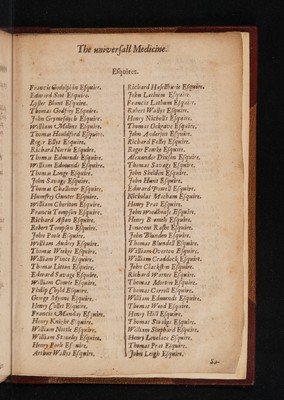 The universall Medicine.
Esquires.
Francis Godolphin Esquire.
Edward Esquire.
Lyster Blunt Esquire.
Thomas Godfrey Esquire.
John Esquire.
William Esquire.
Thomas Esquire.
Roger Elliot Esquire.
Richard Norris Esquire.
Thomas Edmonds Esquire.
William Edmonds Esquire.
Thomas Longe Esquire.
John Savage Esquire.
Thomas Challoner Esquire.
Humfrey Gunter Esquire.
William Charlton Esquire.
Francis Tompson Esquire.
Richard Aston Esquire.
Robert Tompson Esquire.
John Poole Esquire.
William Audrey Esquire.
Thomas Esquire.
William Vince Esquire.
Thomas Litton Esquire.
Edward Savage Esquire.
William Esquire.
Philip Esquire.
George Esquire.
Henry Collet Esquire.
Francis Munday Esquire.
Henry Knight Esquire.
William North Esquire.
William Stranley Esquire.
Henry Poole Esquire.
Arthur Wallis Esquire.
Richard Esquire.
John Lathum Esquire.
Francis Lathum Esquire.
Robert Wallis Esquire.
Henry Nicholls Esquire.
Thomas Esquire.
John Anderson Esquire.
Richard Esquire.
Roger Fowke Esquire.
Alexander Dixson Esquire.
Thomas Savage Esquire.
John Sheldon Esquire.
John Hunt Esquire.
Edward Esquire.
Nicholas Markham Esquire.
Henry Prat Esquire.
John Woodhouse Esquire.
Henry Esquire.
Esquire.
John Blundon Esquire.
Thomas Blundell Esquire.
William Overton Esquire.
William Craddock Esquire.
John Clarkson Esquire.
Richard Warner Esquire.
Thomas Morton Esquire.
Thomas Carrell Esquire.
William Edmonds Esquire.
Thomas Wood Esquire.
Henry Hill Esquire.
Thomas Stookes Esquire.
William Shephard Esquire.
Henry Lovelace Esquire.
Thomas Prat Esquire.
John Leigh Esquire.